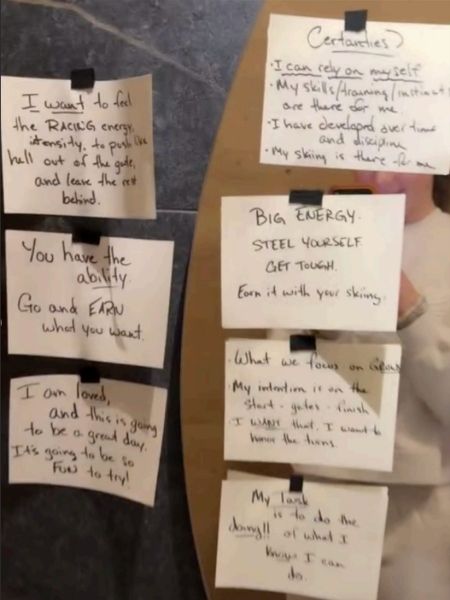 I want to feel
the RACING energy,
intensity, to push like
hell out of the gate,
and leave the rest
behind.
You have the
ability.
Go and EARN
what you want.
I am loved,
and this is going
to be a great day.
It's going to be so
FUN to try!
Certainties
• I can rely on myself
• My skills/training/instinct
are there for me.
• I have developed over time
and discipline
• My skiing is there for me
BIG ENERGY.
STEEL YOURSELF
GET TOUGH.
Earn it with your skiing.
• What we focus on GROWS
• My intention is on the
start - gates - finish
I WANT that. I want to
honor the turns.
My task
is to do the
doing!! of what I
know I can
do.